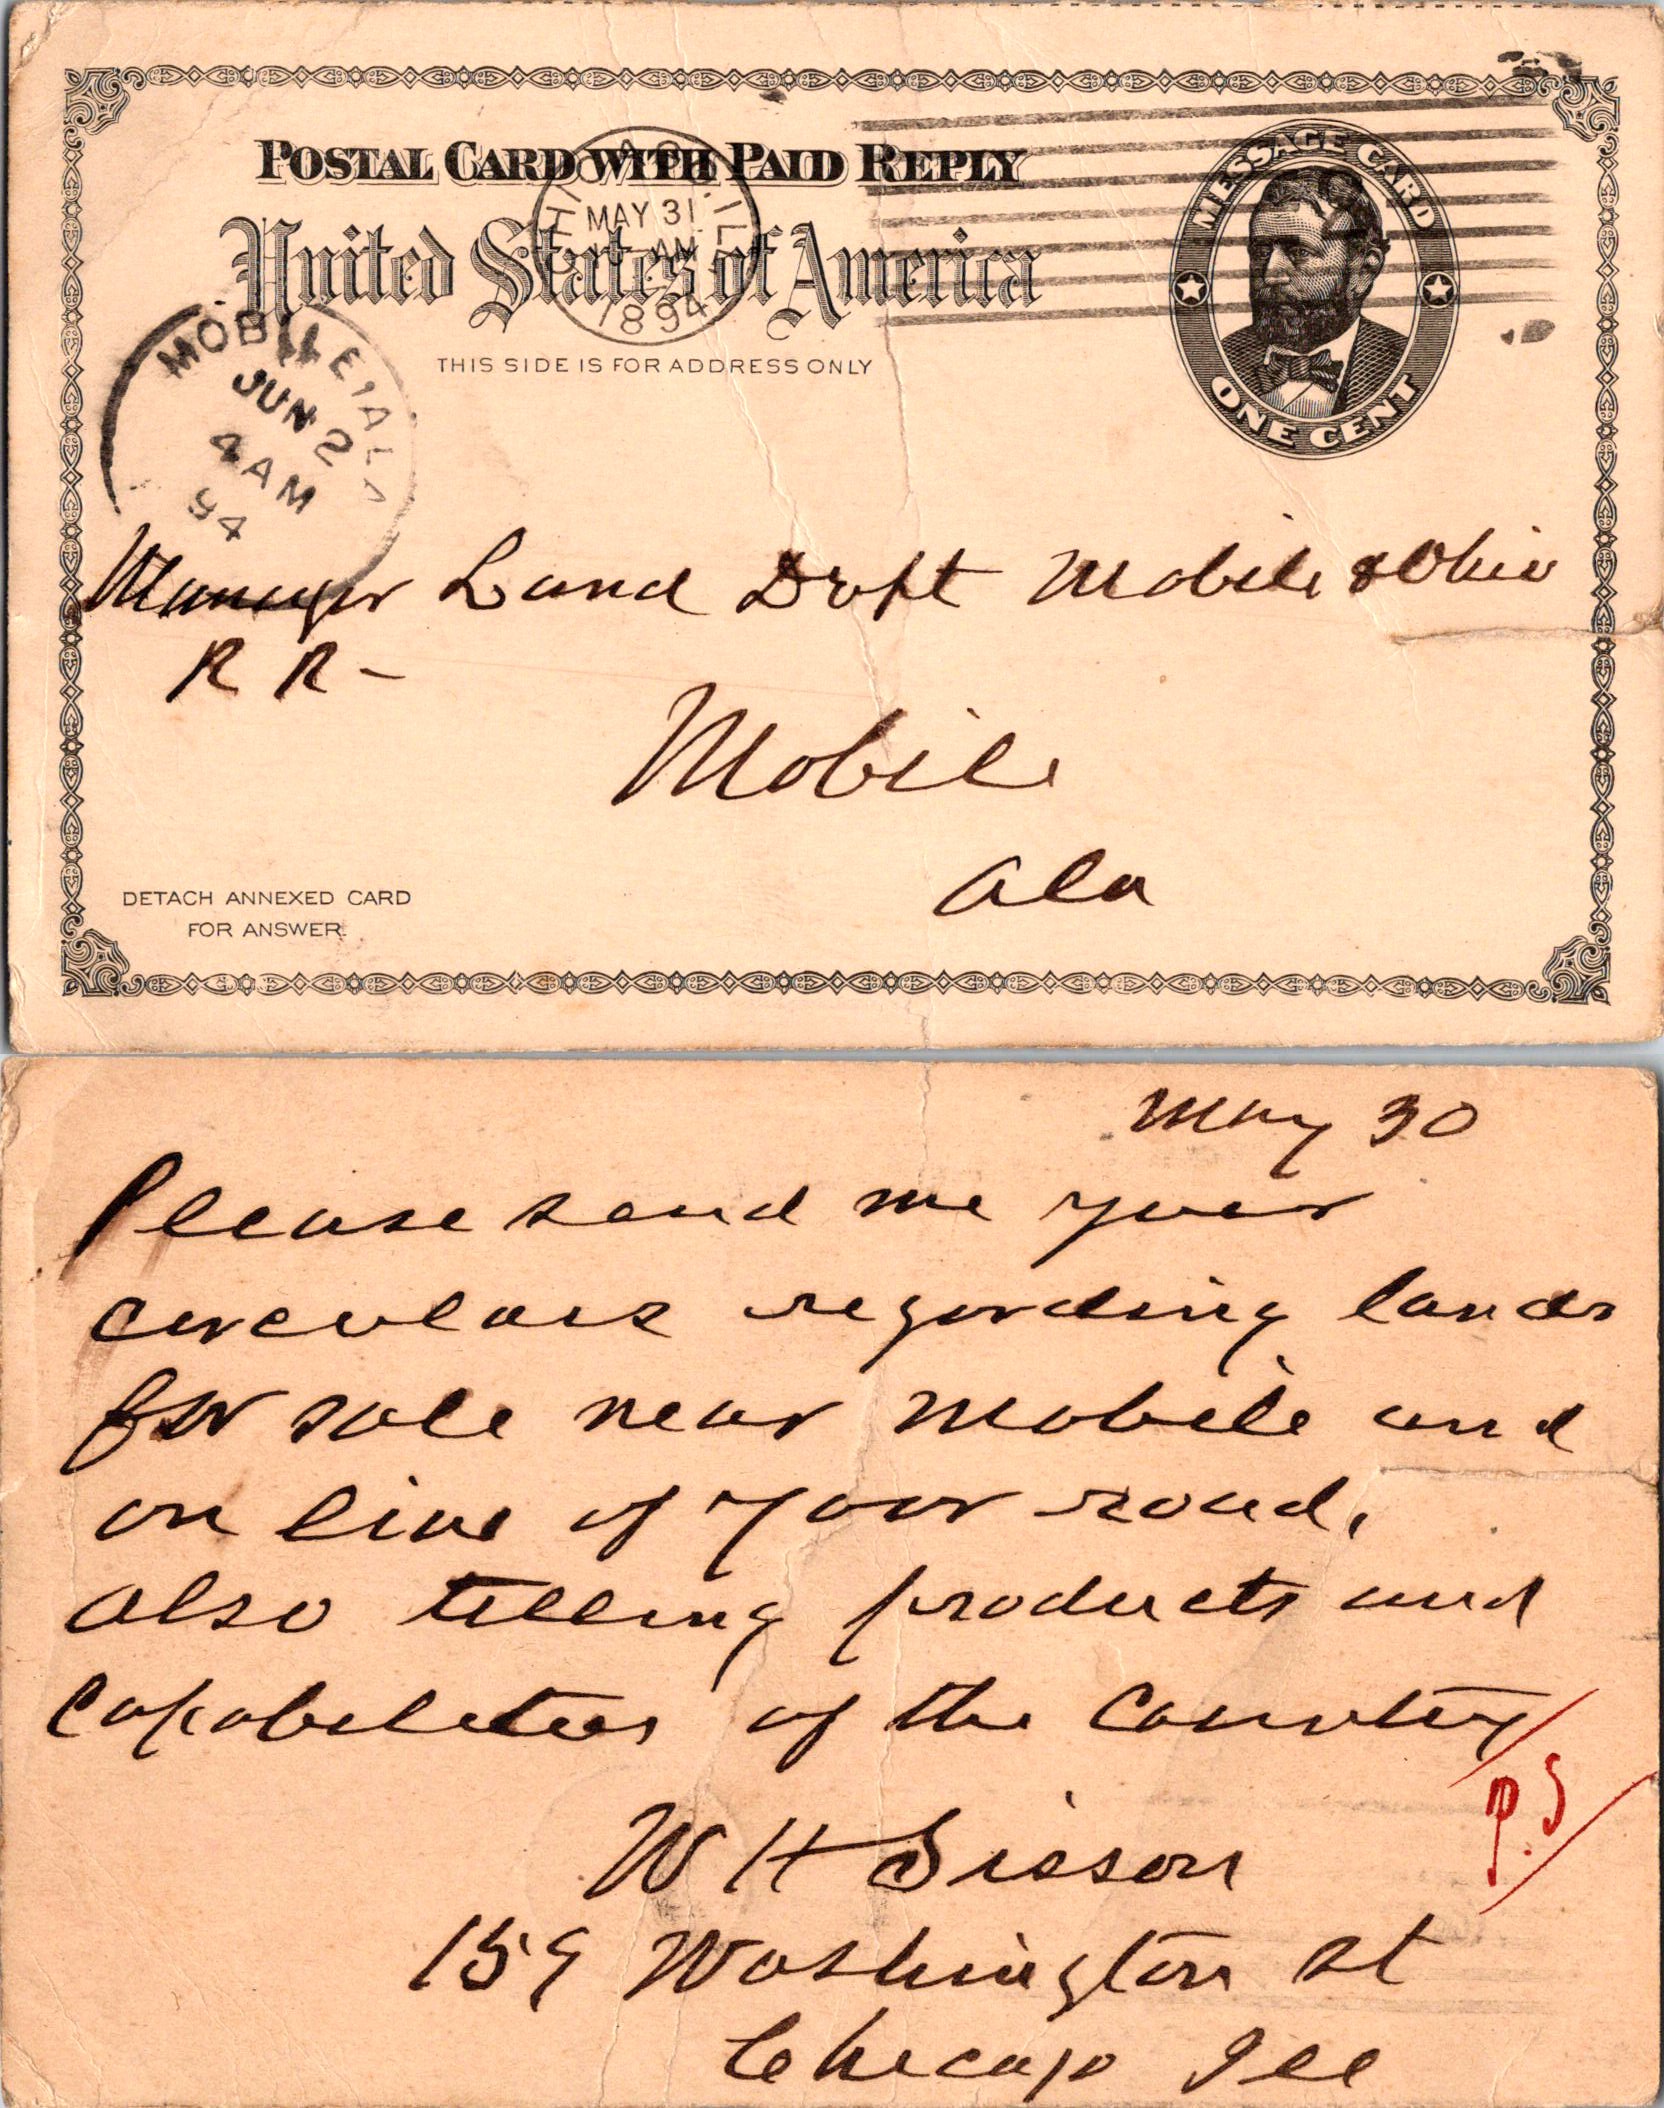 POSTAL CARD WITH PAID REPLY
United States of America
THIS SIDE IS FOR ADDRESS ONLY
CHICAGO, ILL.
MAY 31
AM
1894
MESSAGE CARD
ONE CENT
MOBILE, ALA
JUN 2
4 AM
94
Manager Land Dept Mobile & Ohio
R R -
Mobile
Ala
DETACH ANNEXED CARD
FOR ANSWER.
May 30
Please send me your
circulars regarding lands
for sale near Mobile and
on line of your road,
also telling products and
capabilities of the Country
P.S
W H Sisson
159 Washington st
Chicago Ill